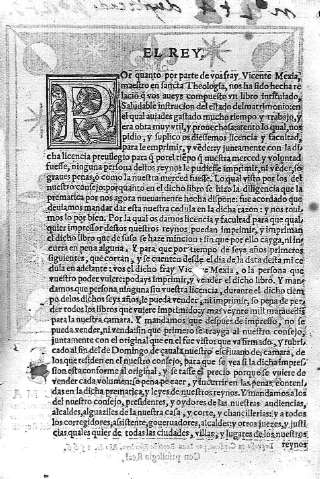 EL REY.
POr quanto por parte de vos fray Vicente Mexia,
maestro en sancta Theologia, nos ha sido hecha re
lació q̃ vos aueys compuesto vn libro intitulado,
Saludable instrucion del estado del matrimonio: en
el qual auiades gastado mucho tiempo y trabajo, y
era obra muy vtil, y prouechosa: atento lo qual, nos
pidio, y suplico os diessemos licencia y facultad,
para le emprimir, y véder: y juntamente con la di
cha licencia preuilegio para q̃ por el tiẽpo q̃ nuestra merced y voluntad
fuesse, ninguna persona destos reynos le pudiesse imprimir, ni véder, so
graues penas, o como la nuestra merced fuesse. Lo qual visto por los del
nuestro consejo: porquanto en el dicho libro se hizo la diligencia que la
prematica por nos agora nueuamente hecha dispone: fue acordado que
deuiamos mandar dar esta nuestra cedula en la dicha razon: y nos tuui
mos lo por bien. Por la qual os damos licencia y facultad para que qual-
quier impressor destos nuestros reynos puedan imprimir, y impriman
el dicho libro que de suso se haze mincion: sin que por ello cayga, ni in
curra en pena alguna, Y para que por tiempo de seys años primeros
siguientes, que corran, y se cuenten desde el dia de la data desta mi ce
dula en adelante: vos el dicho fray Vicẽte Mexia, o la persona que
vuestro poder vuiere: podays imprimir, y vender el dicho libro. Y man
damos que persona ninguna sin vuestra licencia, durante el dicho tiem
po de los dichos seys años, le pueda vender, ni imprimir, so pena de per-
der todos los libros que vuiere imprimido, y mas veynte mil marauedis
para la nuestra camara. Y mandamos que despues de impresso, no se
pueda vender, ni venda sin que primero se trayga al nuestro consejo,
juntamente con el original que en el fue visto: que va firmado, y rubri
cado al fin del de Domingo de çauala nuestro escriuano de camara, de
los que residen en el nuestro consejo, para que se vea si la dicha impres-
sion esta conforme al original, y se tasse el precio porque se vuiere de
vender cada volumen: so pena de caer, y incurrir en las penas conteni-
das en la dicha prematica, y leyes de nuestros reynos. Y mandamos a los
del nuestro consejo, presidentes, y oydores de las nuestras audiencias,
alcaldes, alguaziles de la nuestra casa, y corte, y chancillerias: y a todos
los corregidores, assistente, gouernadores, alcaldes y otros juezes, y justi
cias quales quier de todas las ciudades, villas, y lugares de los nuestros
reynos